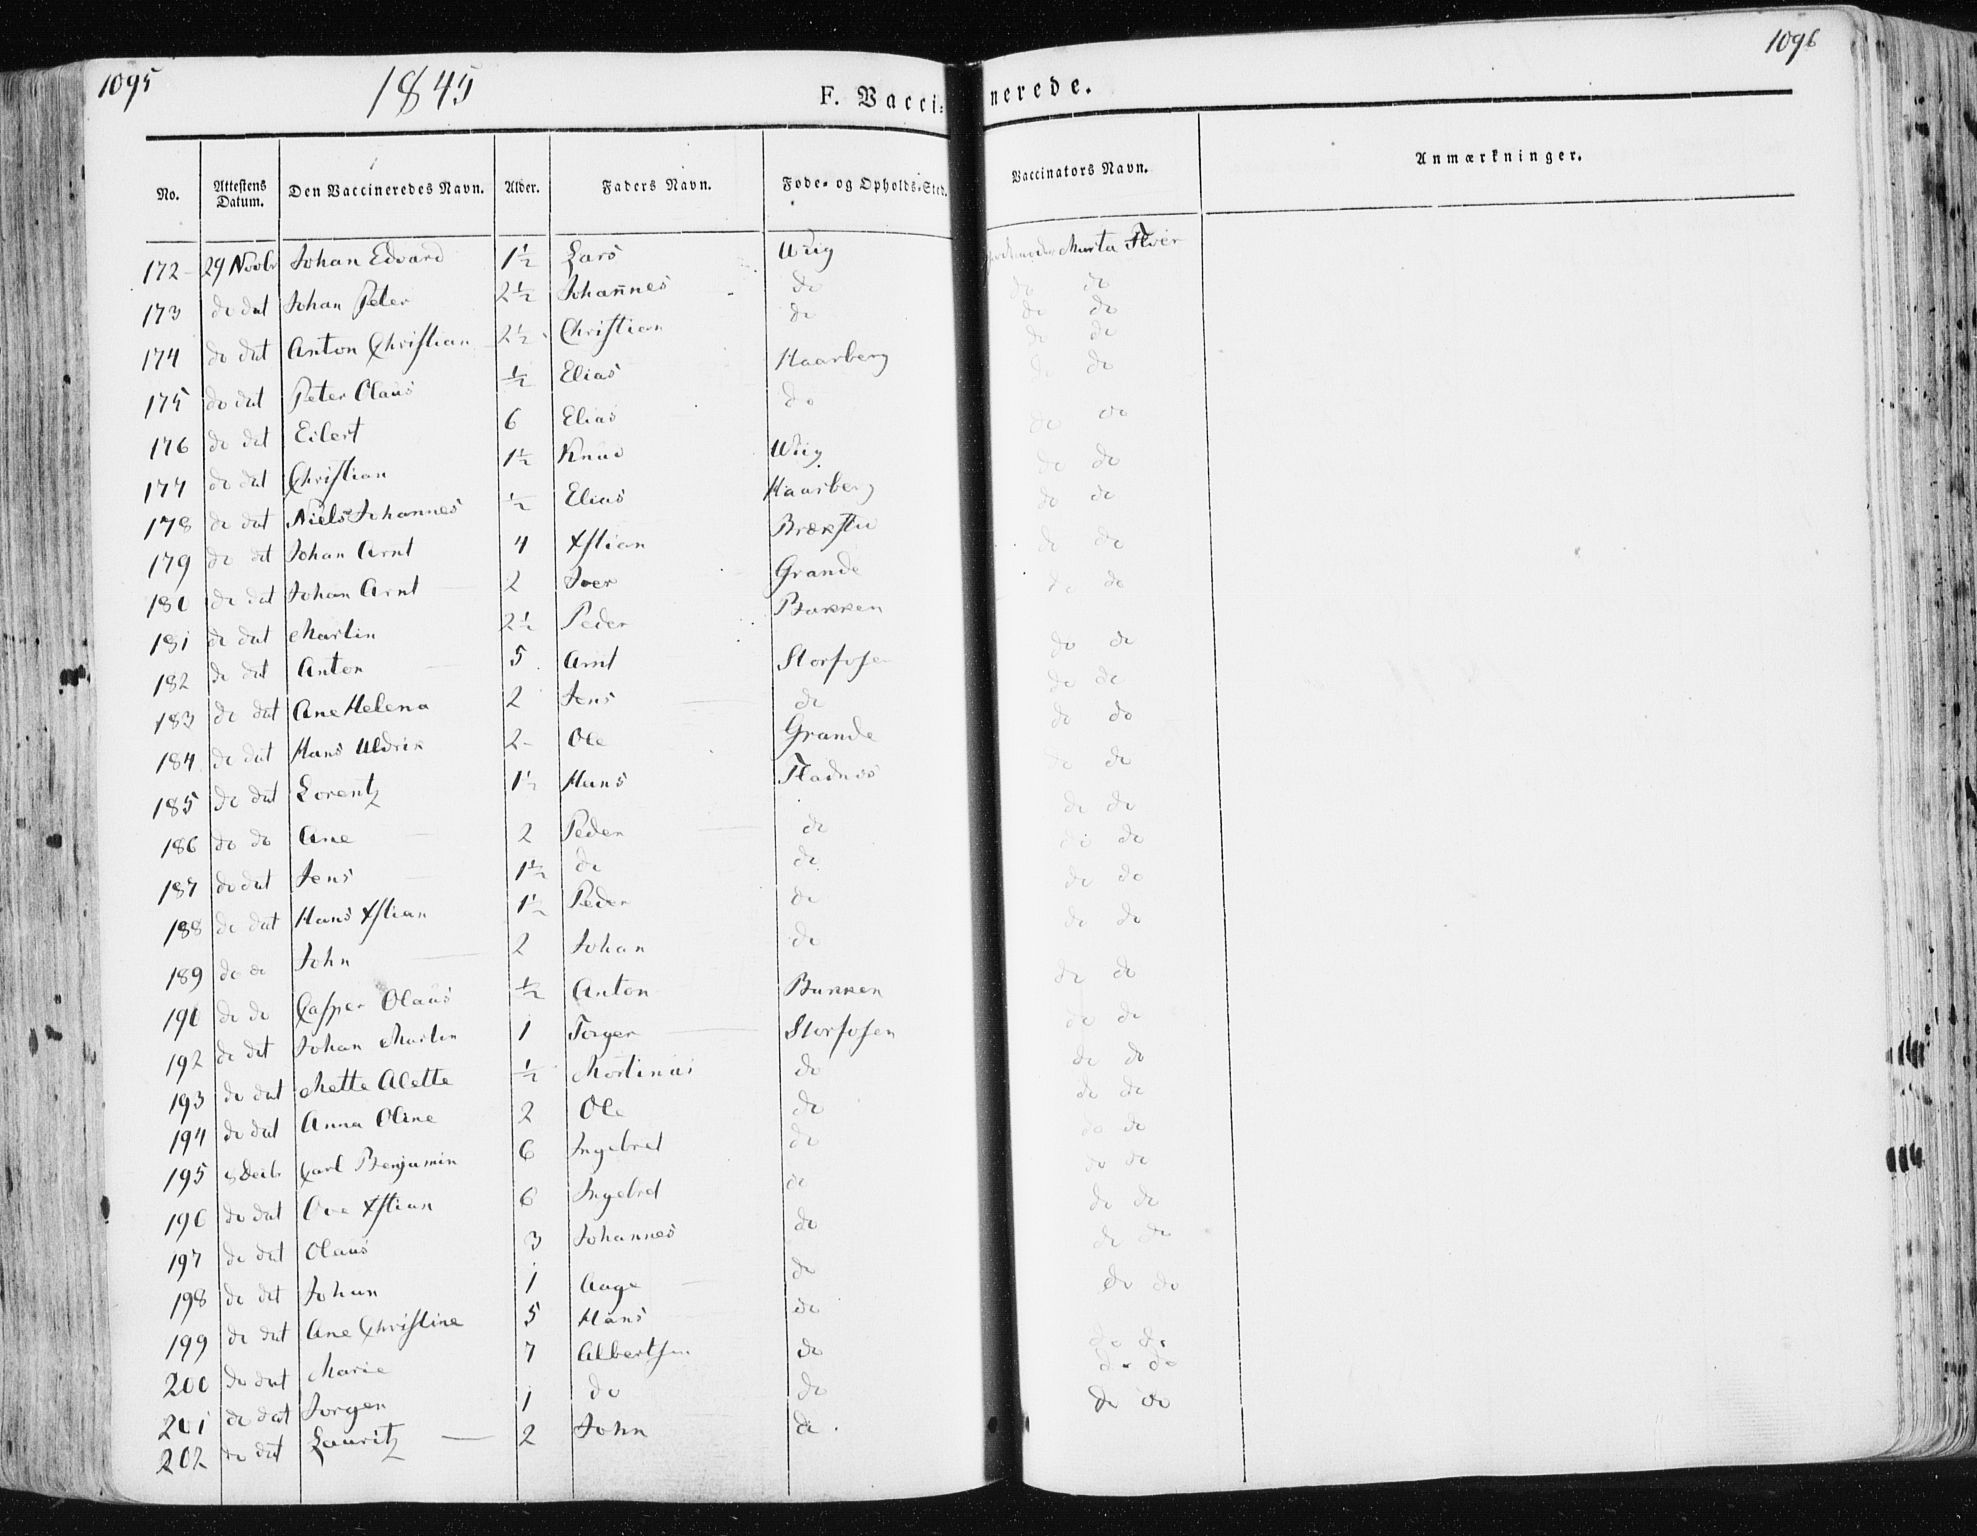 1095
1845
F. Vacci=nerede.
1096
No. Attestens Datum. Den Vaccineredes Navn. Alder. Faders Navn. Føde- og Opholds-Sted. Vaccinators Navn. Anmærkninger.
172 29 Novbr Johan Edvard 1½ Lars Uuig Marta Floer
173 do dat Johan Peter 2½ Johannes do do do
174 do dat Anton Christian 2½ Christian do do do
175 do dat Peter Olaus ½ Elias Haarberg do do
176 do dat Eilert 6 Elias do do do
177 do dat Christian 1½ Knud Uuig do do
178 do dat Niels Johannes ½ Elias Haarberg do do
179 do dat Johan Arnt 4 Xstian do do
180 do dat Johan Arnt 2 Iver Grande do do
181 do dat Martin 2½ Peder Bakken do do
182 do dat Anton 5 Arnt Storfosen do do
183 do dat Ane Helena 2 Jens do do do
184 do dat Hans Uldrik 2 Ole Grande do do
185 do dat Lorentz 1½ Hans Fladnes do do
186 do do Ane 2 Peder do do do
187 do dat Jens 1½ do do do do
188 do dat Hans Xstian 1½ Peder do do do
189 do do John 2 Johan do do do
190 do do Casper Olaus ½ Anton Bakken do do
192 do dat Johan Martin 1 Torger Storfosen do do
193 do dat Mette Alette ½ Mortinus do do do
194 do dat Anna Oline 2 Ole do do do
195 8 Decbr Carl Benjamin 6 Ingebret do do do
196 do dat Ove Xstian 6 Ingebret do do do
197 do dat Olaus 3 Johannes do do do
198 do dat Johan 1 Aage do do do
199 do dat Ane Christine 5 Hans do do do
200 do dat Marie 7 Albertsen do do do
201 do dat Jorgen 1 do do do do
202 do dat Lauritz 2 John do do do